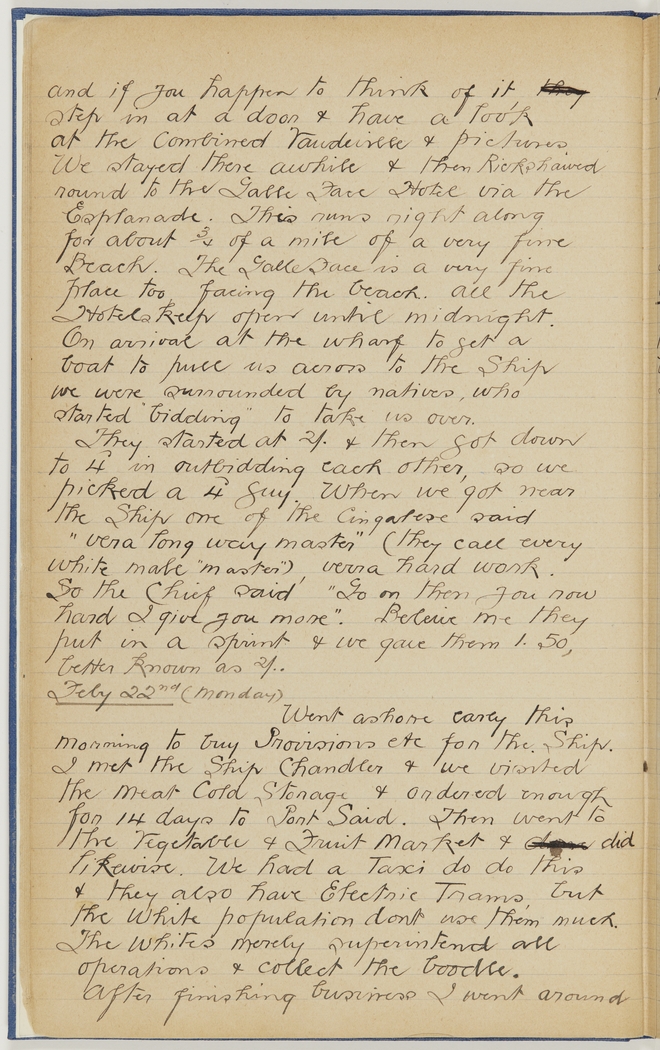 and if you happen to think of it they
step in at a door & have a look
at the Combined Vaudeville & pictures.
We stayed there awhile & then Rickshawed
round to the Galle Face Hotel via the
Esplanade. This runs right along
for about ¾ of a mile of a very fine
Beach. The Galle Face is a very fine
place too, facing the beach. All the
Hotels keep open until midnight.
On arrival at the wharf to get a
boat to pull us across to the Ship
we were surrounded by natives, who
started "bidding" to take us over.
They started at 2/- & then got down
to 4d in outbidding each other, so we
picked a 4d guy. When we got near
the Ship one of the Cingalese said
"vera long way master" (they call every
white male "master"), verra hard work.
So the Chief said "Go on then you row
hard I give you more". Believe me they
put in a sprint & we gave them 1.50,
better known as 2/-.
Feby 22nd (Monday)
Went ashore early this
morning to buy Provisions etc for the Ship.
I met the Ship Chandler & we visited
the Meat Cold Storage & ordered enough
for 14 days to Port Said. Then went to
the Vegetable & Fruit Market & done did
likewise. We had a Taxi do do this
& they also have Electric Trams, but
the White population dont use them much.
The whites merely superintend all
operations & collect the boodle.
After finishing business I went around